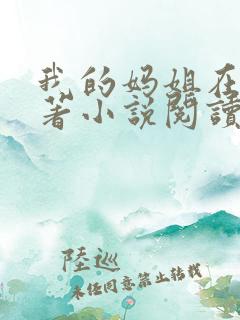 我的妈姐在
著小说閱讀
陸巡
未经同意禁止转载